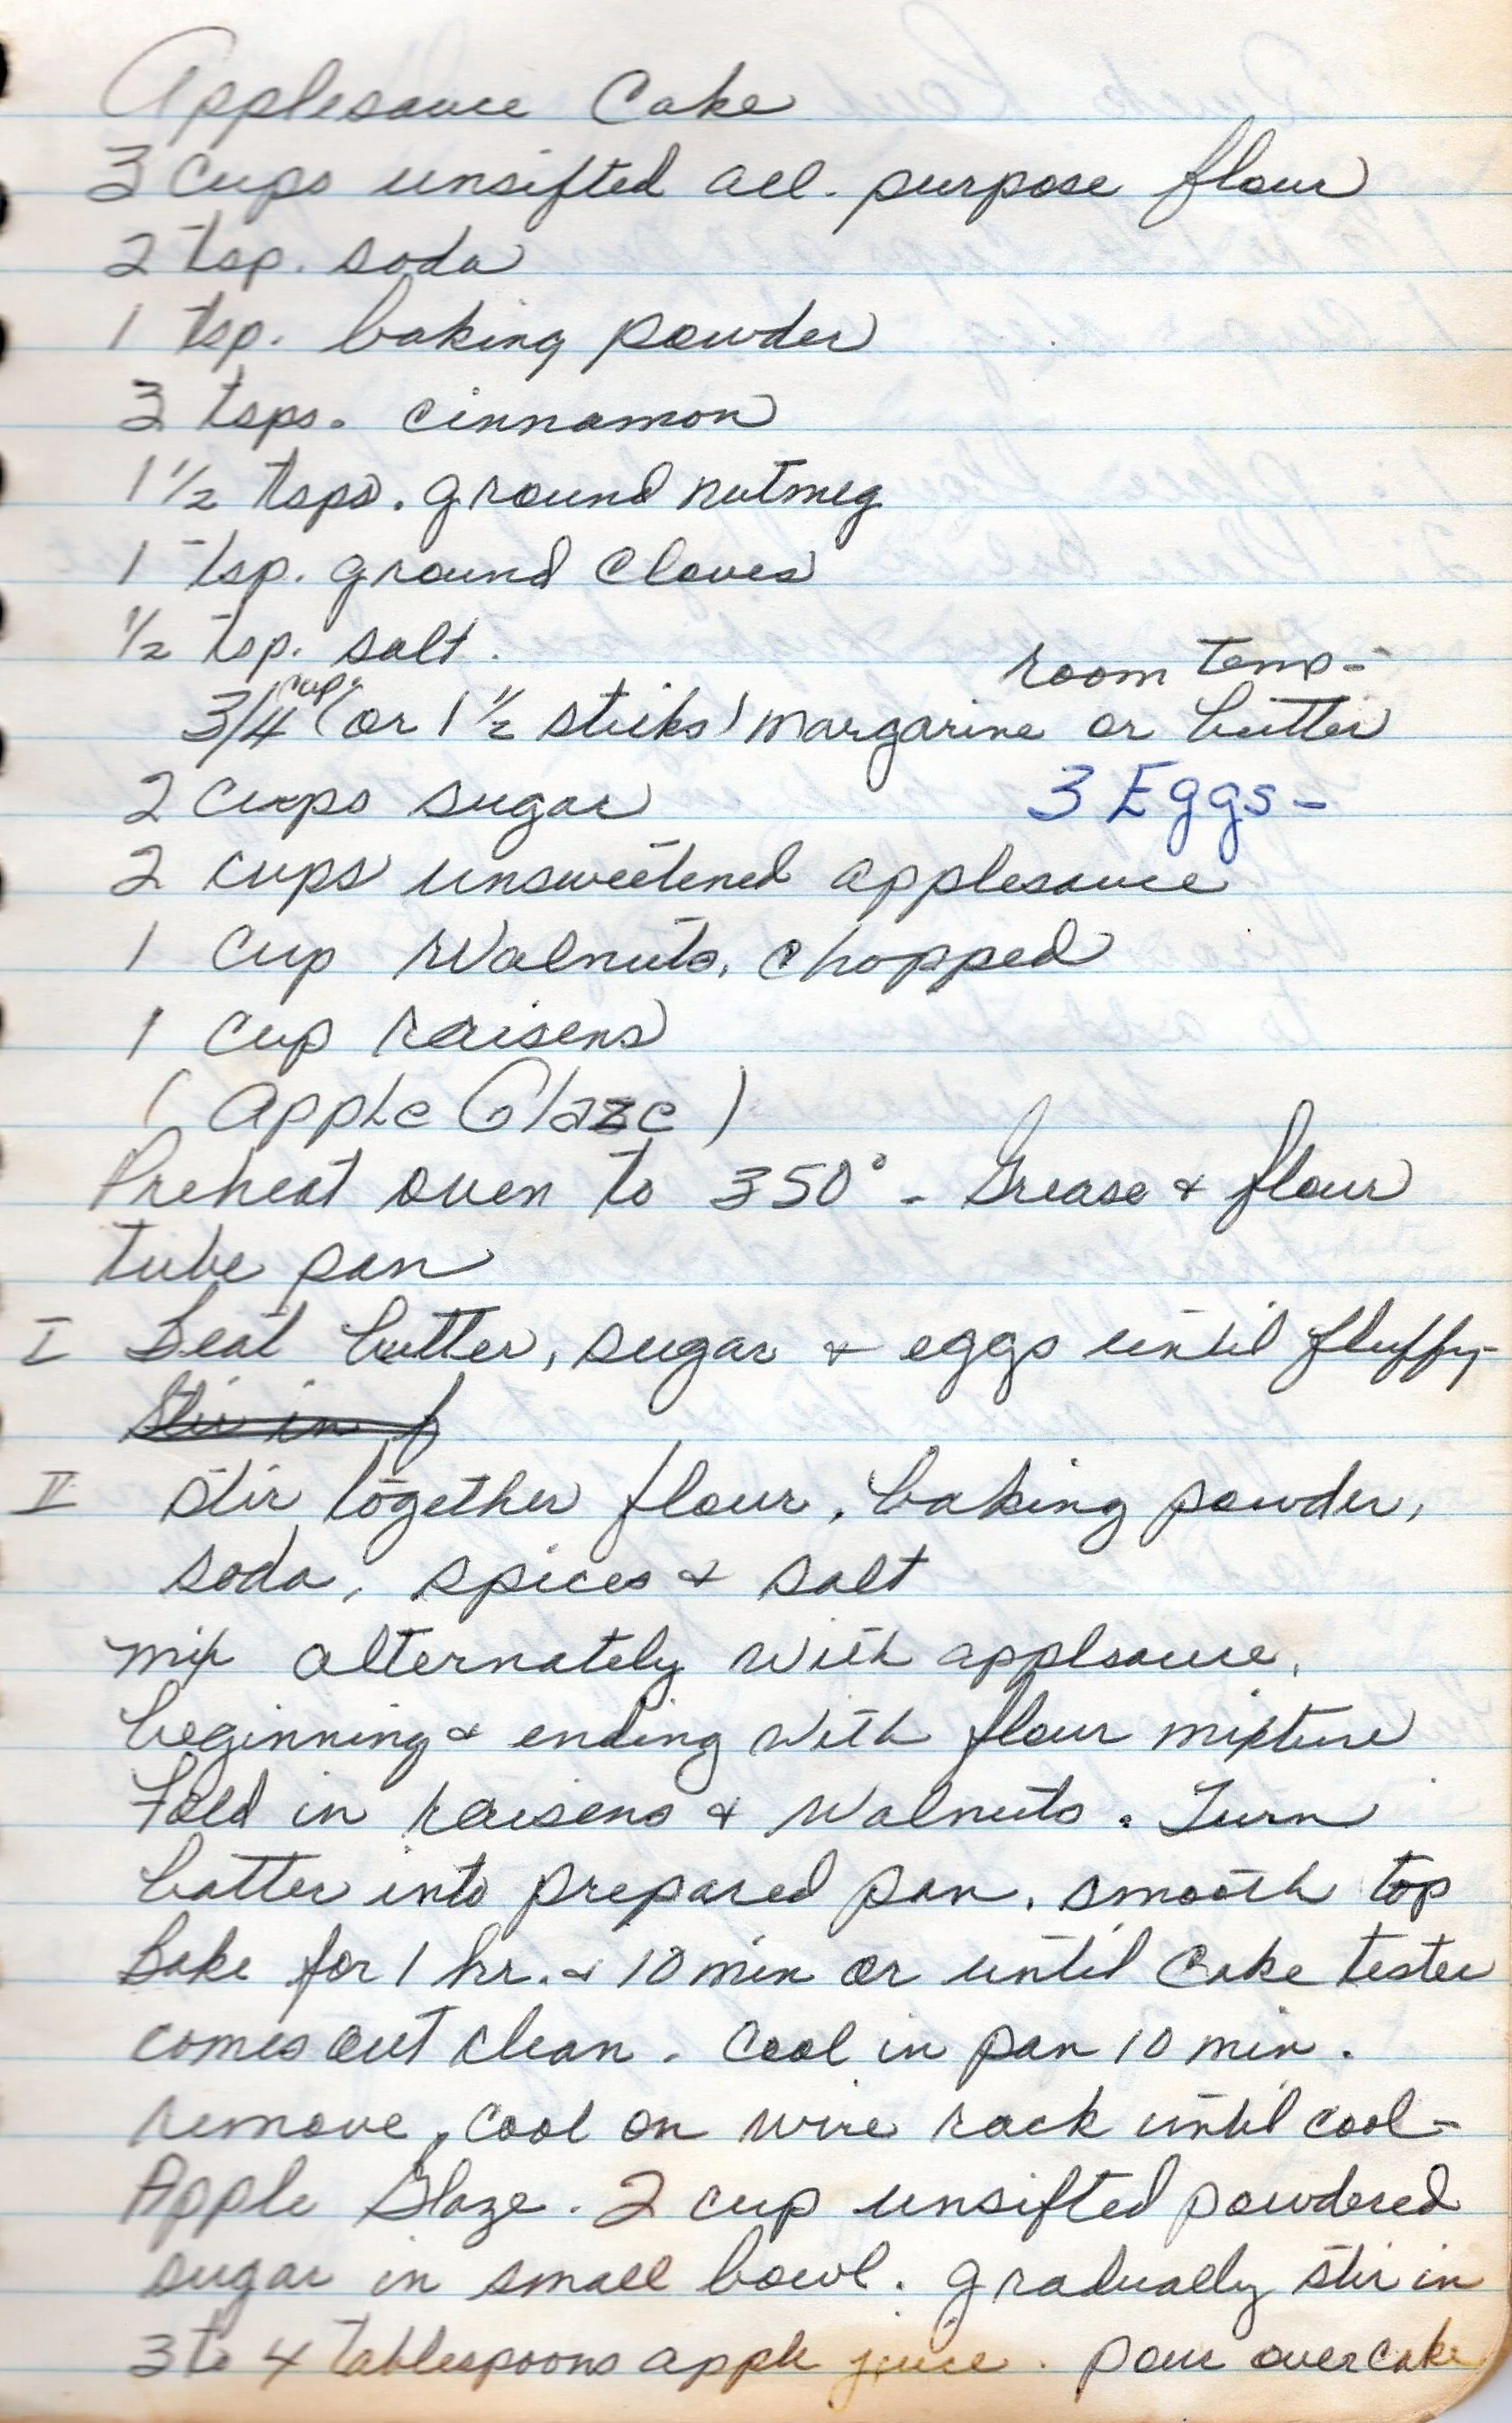 Applesauce Cake
3 cups unsifted all-purpose flour
2 tsp. soda
1 tsp. baking powder
3 tsps. cinnamon
1 1/2 tsps. ground nutmeg
1 tsp. ground cloves
1/2 tsp. salt.
room temp-
3/4 cup (or 1 1/2 sticks) margarine or butter
2 cups sugar 3 Eggs-
2 cups unsweetened applesauce
1 cup Walnuts, chopped
1 cup raisens
(Apple Glaze)
Preheat oven to 350° - Grease & flour
tube pan
I Beat butter, sugar & eggs until fluffy-
Stir in f
II Stir together flour, baking powder,
soda, spices & salt
mix alternately with applsauce,
beginning & ending with flour mixture
Fold in raisens & Walnuts. Turn
batter into prepared pan, smooth top
Bake for 1 hr. & 10 min or until cake tester
comes out clean. Cool in pan 10 min.
remove, cool on wire rack until cool-
Apple Glaze. 2 cup unsifted powdered
sugar in small bowl. gradually stir in
3 to 4 tablespoons apple juice. pour over cake